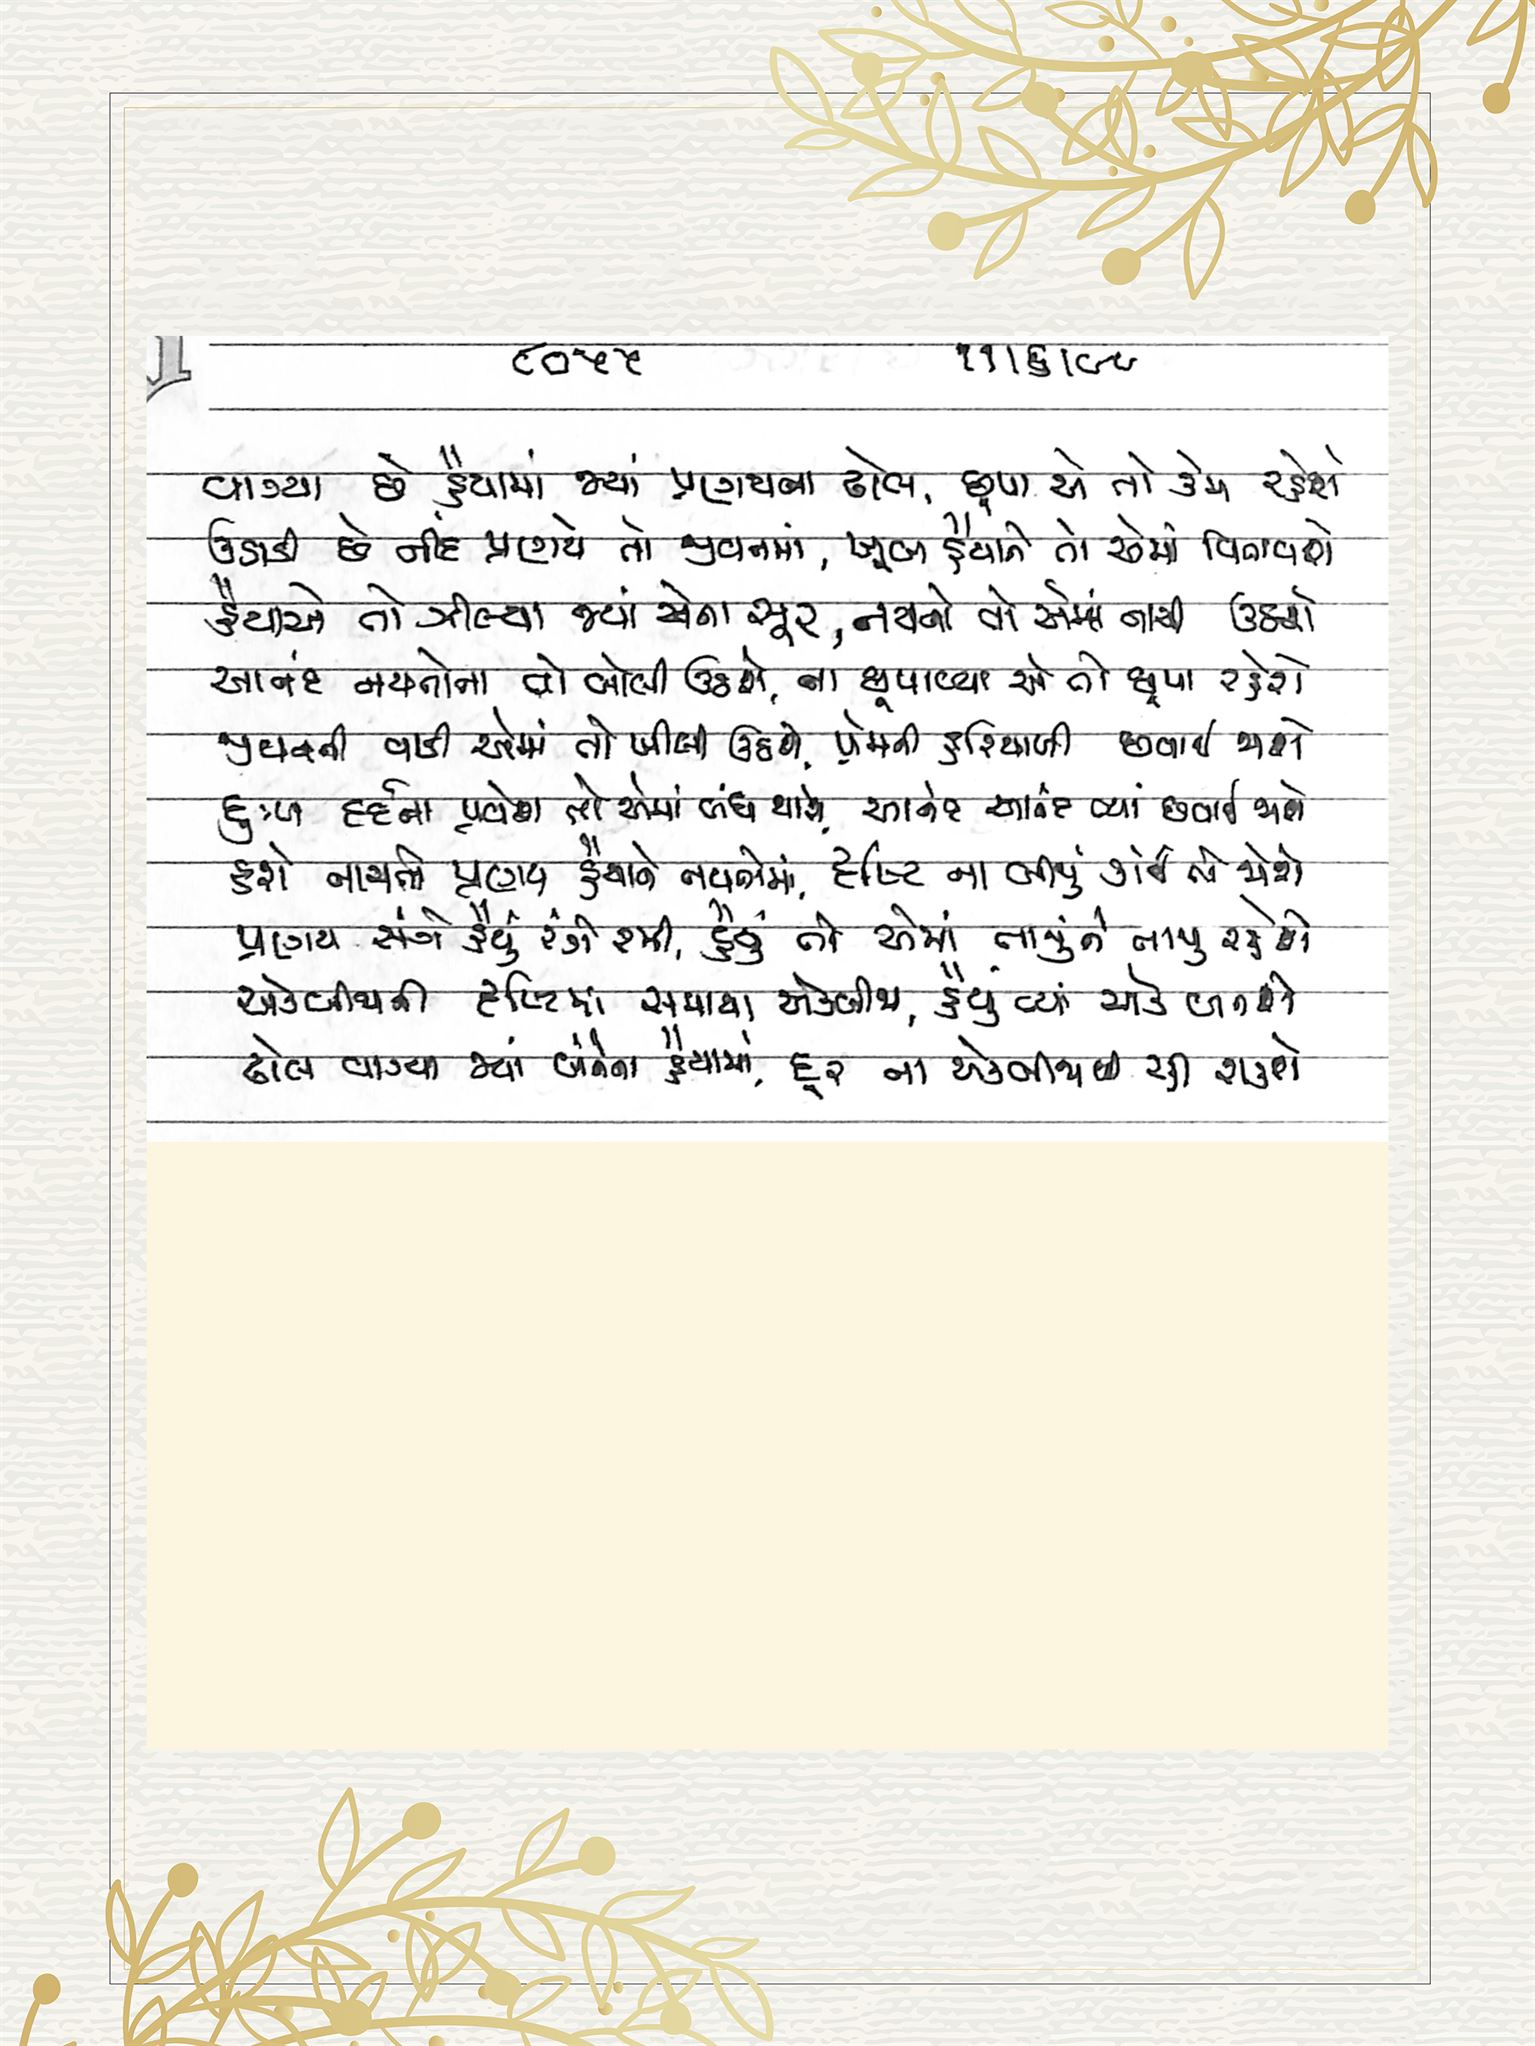 ૮૦૫૫ ૧૧।૬।૯૯
વાગ્યા છે હૈયામાં જ્યાં પ્રણયના ઢોલ, છૂપા એ તો કેમ રહેશે
ઉડાડી છે નીંદ પ્રણયે તો જીવનમાં, ખૂબ હૈયાને તો એમાં
હૈયાએ તો ઝીલ્યા જ્યાં એના સૂર, નયનો તો એમાં નાચી ઉઠશે
આનંદ નયનોના તો બોલી ઉઠશે, ના છૂપાવ્યા એ તો છૂપા રહેશે
જીવનની વાડી એમાં તો ખીલી ઉઠશે, પ્રેમની હરિયાળી છવાઈ જાશે
દુઃખ દર્દના પ્રવેશ તો એમાં બંધ થાશે, આનંદ આનંદ ત્યાં છવાઈ જાશે
હશે નાચતો પ્રણય હૈયાને નયનોમાં, દૃષ્ટિ ના બીજું કાંઈ તો જોશે
પ્રણય સંગે હૈયું રંગે રમી, હૈયું તો એમાં નાચું ને નાચુ રહેશે
એકબીજાની દૃષ્ટિમાં સમાયા એકબીજા, હૈયું ત્યાં એક બનશે
ઢોલ વાગ્યા જ્યાં બંનેના હૈયામાં, દૂર ના એકબીજાથી રહી શકશે